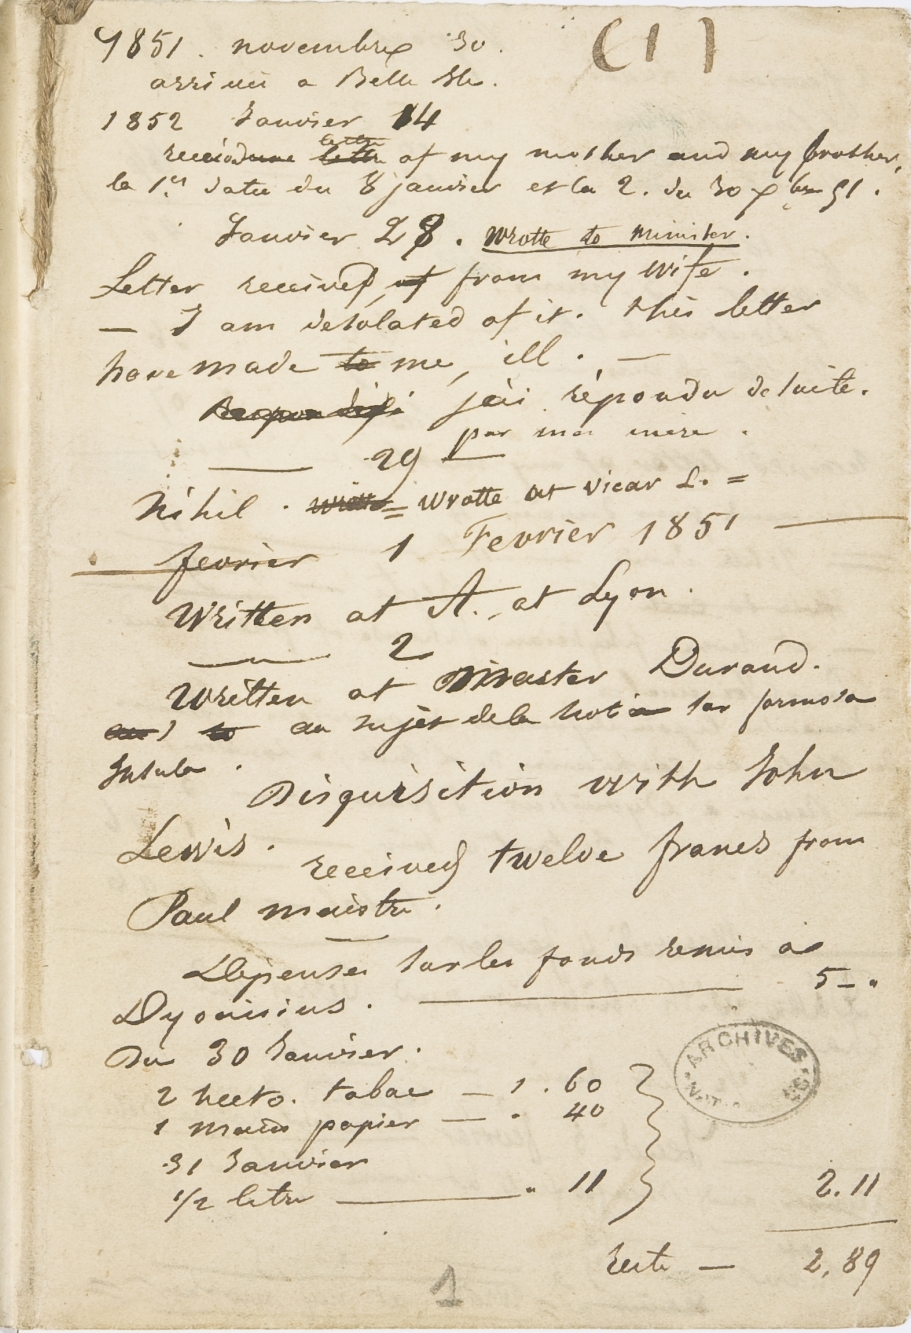 (1)
1851. novembre 30.
arrivée a Belle Ile.
1852 Janvier 14
letter
received une lettr of my mother and my brother,
la 1ere datée du 8 janvier et la 2. du 30 Xbre 51.
Janvier 28. Wrotte to Minister.
Letter received of from my wife.
— I am desolated of it. this letter
have made to me, ill. —
j'ai répondu de suite.
par ma mère.
— 29 —
Nihil. wrotte = wrotte at vicar L. =
fevrier 1 Fevrier 1851 —
Written at A., at Lyon.
— 2
Written at Master Durand.
to au sujet de la nota sur formosa
Insula.
Disquisition with John
Lewis.
received twelve francs from
Paul maistre.
Dépenses sur les fonds remis a
Dyonisius. — 5 –.
Du 30 Janvier.
2 hecto. tabac — 1.60
1 main papier — . 40
31 Janvier
1/2 litre — . 11
2.11
reste — 2,89
1
ARCHIVES